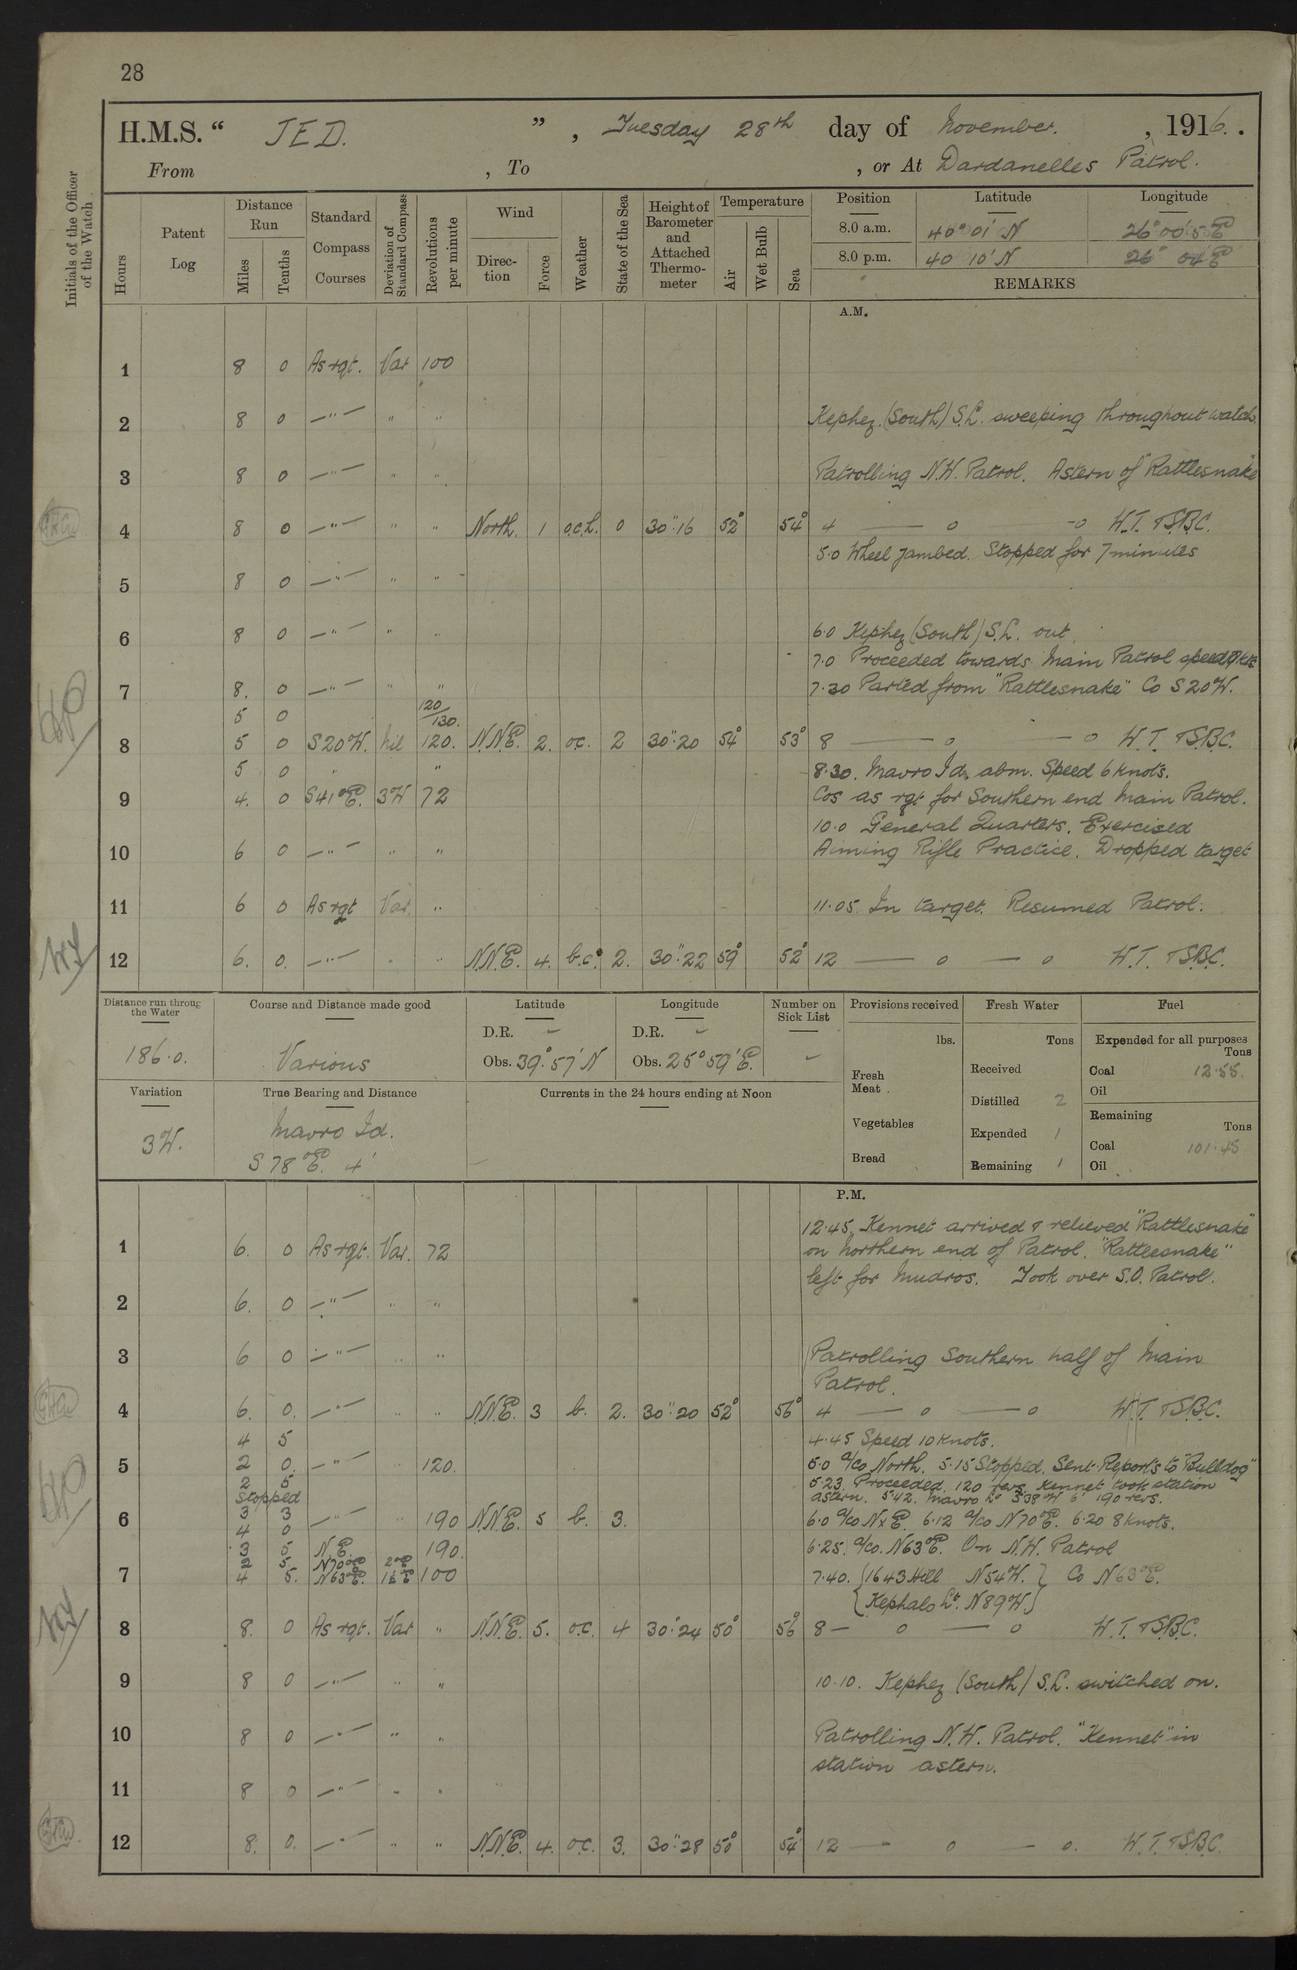 28
H.M.S. “ JED. ” , Tuesday 28th day of November. , 1916. .
From , To , or At Dardanelles Patrol.
Initials of the Officer of the Watch
Hours
Patent Log
Distance Run
Miles
Tenths
Standard Compass Courses
Deviation of Standard Compass
Revolutions per minute
Wind
Direction
Force
Weather
State of the Sea
Height of Barometer and Attached Thermometer
Temperature
Air
Wet Bulb
Sea
Position Latitude Longitude
8.0 a.m. 40° 01' N 26° 00'.5 E
8.0 p.m. 40 10' N 26° 04' E
REMARKS
A.M.
1 8 0 As rqt. Var 100
2 8 0 —"— " " Kephez (South) S.L. sweeping throughout watch.
3 8 0 —"— " " Patrolling N.W. Patrol. Astern of Rattlesnake
4 8 0 —"— " " North. 1 o.c.h. 0 30".16 52° 54° 4 — o -o W.T. & S.B.C.
5.0 Wheel jambed. Stopped for 7 minutes
5 8 0 —"— " "
6 8 0 —"— " " 6.0 Kephez (South) S.L. out.
7.0 Proceeded towards Main Patrol speed
7 8. 0 —"— " " 7.30 Parted from "Rattlesnake" Co S20W.
5 0 120/130.
8 5 0 S20W. nil 120. N.N.E. 2. oc. 2 30".20 54° 53° 8 — o — o W.T. & S.B.C.
5 0 " " 8.30. Mavro Id. abm. Speed 6 knots.
9 4. 0 S41°E. 3W 72 Cos as rqt for Southern end Main Patrol.
10.0 General Quarters. Exercised
10 6 0 —"— " " Aiming Rifle Practice. Dropped target
11 6 0 As rqt Var. " 11.05. In target. Resumed Patrol.
12 6. 0. —"— " " N.N.E. 4. b.c. 2. 30".22 59° 52° 12 — o — o W.T. & S.B.C.
Distance run through the Water
186.0.
Course and Distance made good
Various
Latitude
D.R. –
Obs. 39° 57' N
Longitude
D.R. –
Obs. 25° 59' E.
Number on Sick List
–
Provisions received
lbs.
Fresh Meat
Vegetables
Bread
Fresh Water
Tons
Received
Distilled 2
Expended 1
Remaining 1
Fuel
Expended for all purposes
Tons
Coal 12.55.
Oil
Remaining
Tons
Coal 101.45
Oil
Variation
3W.
True Bearing and Distance
Mavro Id.
S 78°E. 4'
Currents in the 24 hours ending at Noon
P.M.
12.45. Kennet arrived & relieved "Rattlesnake"
1 6. 0 As rqt. Var. 72 on Northern end of Patrol. "Rattlesnake"
left for Mudros. Took over S.O. Patrol.
2 6. 0 —"— " "
3 6 0 —"— " " Patrolling Southern half of Main
Patrol.
4 6. 0. —"— " " N.N.E. 3 b. 2. 30".20 52° 56° 4 — o — o W.T. & S.B.C.
4 5 4.45 Speed 10 knots.
5 2 0. —"— " 120. 5.0 a/co North. 5.15 Stopped. Sent Reports to "Bulldog"
2 5 5.23 Proceeded 120 revs. Kennet took station
Stopped astern. 5.42. Mavro Lt S38W 6' 190 revs.
6 3 3 —"— " 190 N.N.E. 5 b. 3. 6.0 a/co NxE. 6.12 a/co N70°E. 6.20 8 knots.
4 0
3 5 N.E. 190. 6.25. a/co. N63°E. On N.W. Patrol
2 5 N70°E 2°E
7 4 5. N63°E. 1½E 100 7.40. {1643 Hill N54W.} Co N63°E.
{Kephalo Lt. N89W.}
8 8. 0 As rqt. Var " N.N.E. 5. o.c. 4 30".24 50° 56° 8 — o — o W.T. & S.B.C.
9 8 0 —"— " " 10.10. Kephez (South) S.L. switched on.
10 8 0 —"— " " Patrolling N.W. Patrol. "Kennet" in
station astern.
11 8 0 —"— " "
12 8. 0. —"— " " N.N.E. 4. o.c. 3. 30".28 50° 54° 12 — o — o. W.T. & S.B.C.